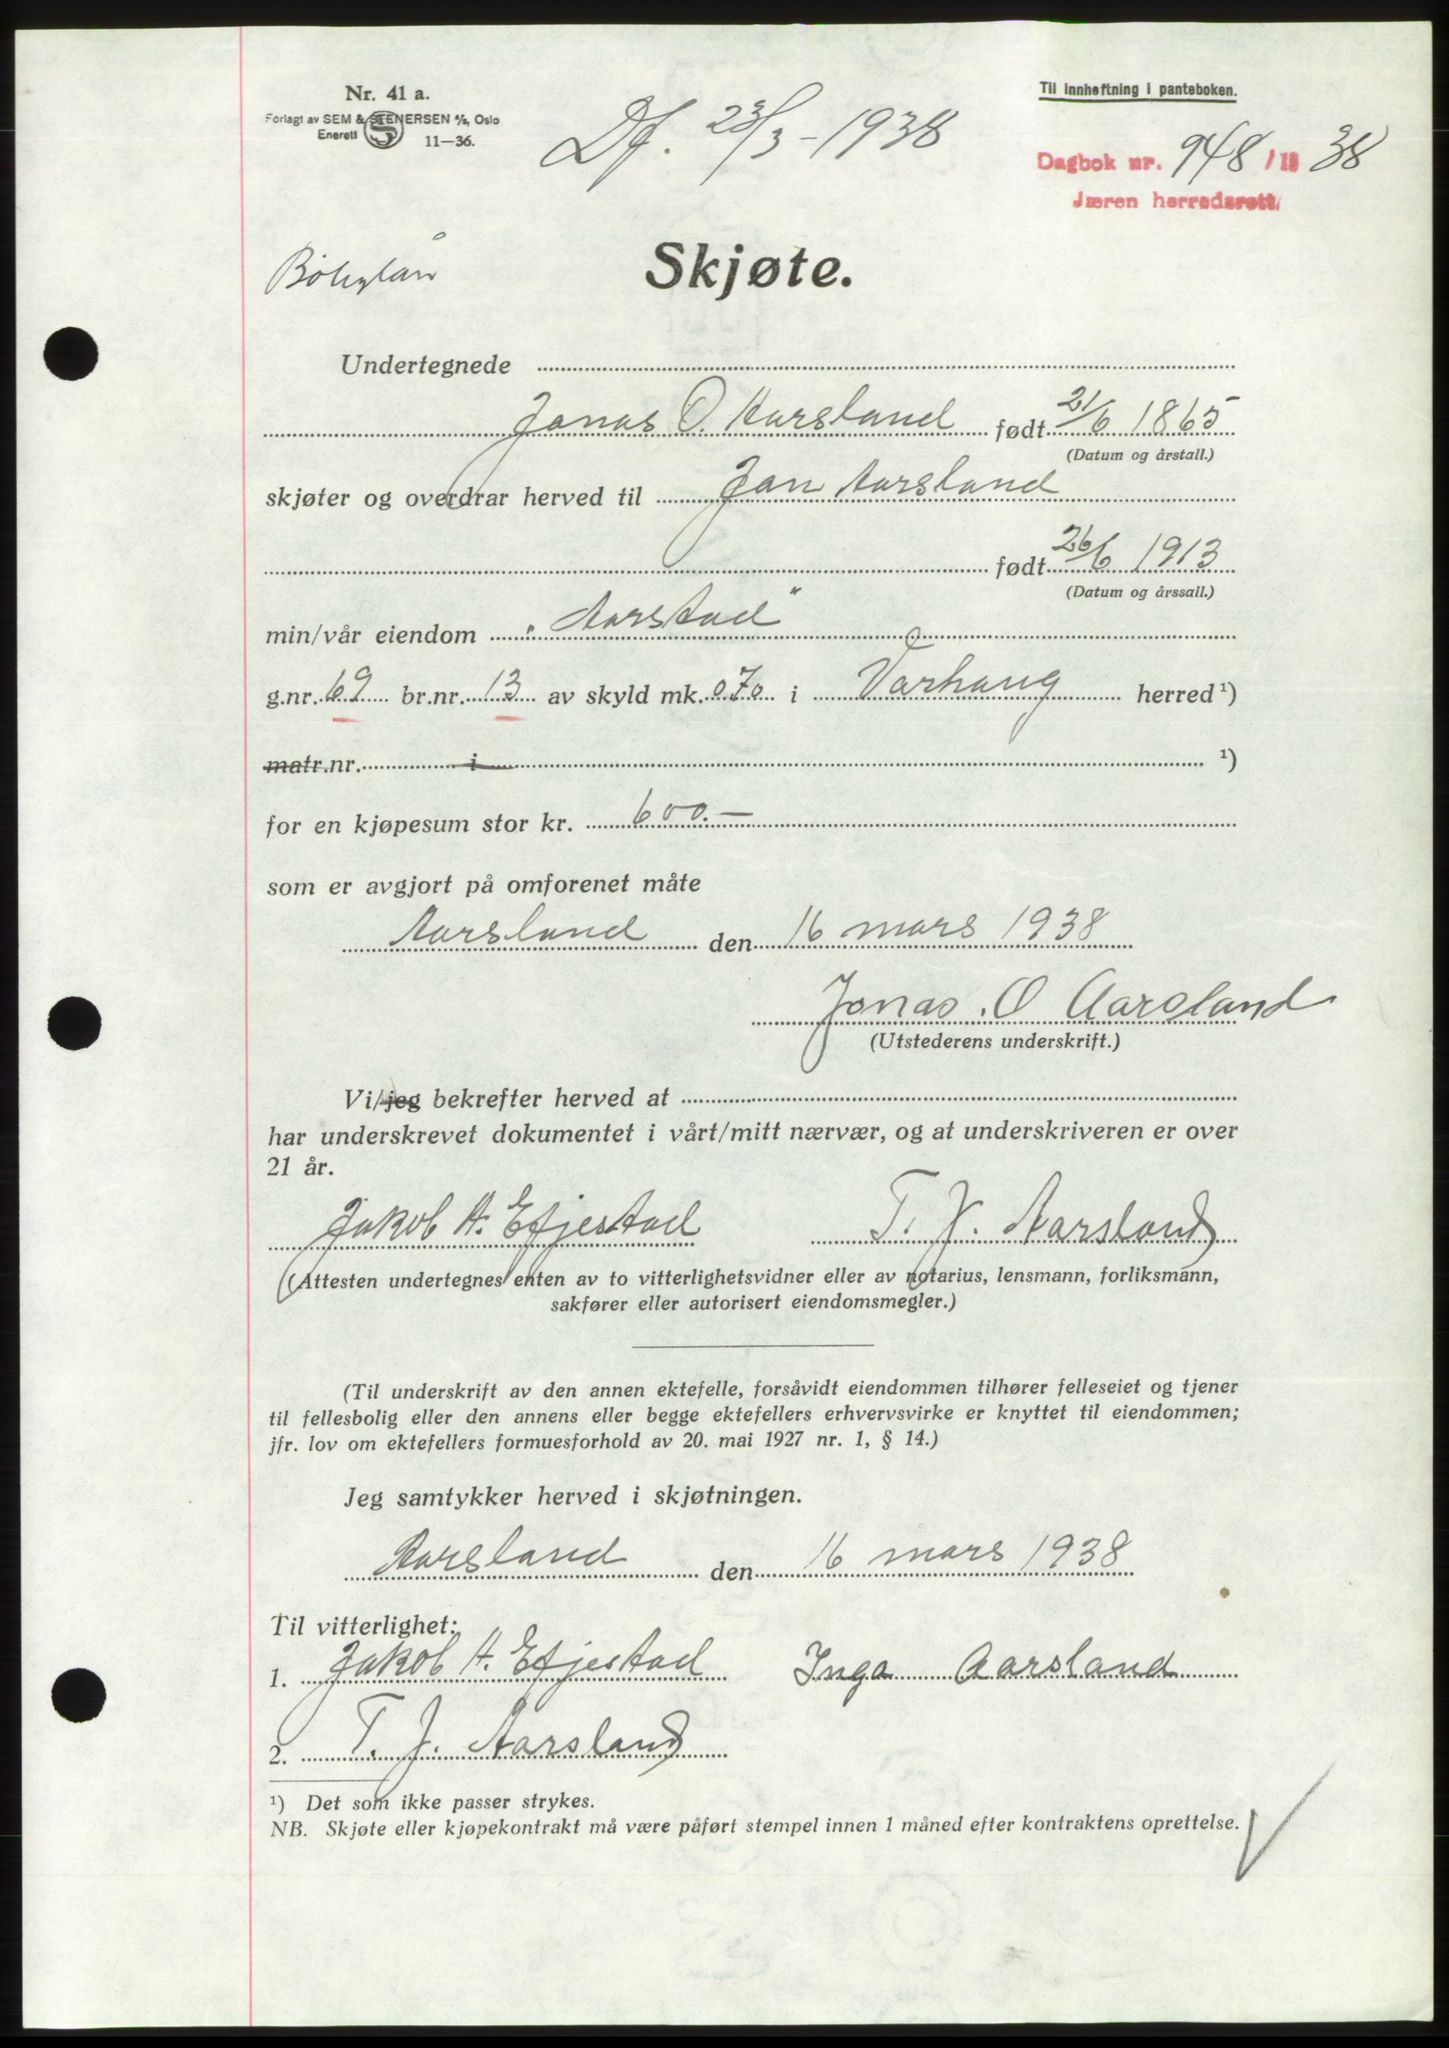 Nr. 41 a.
Forlagt av SEM & STENERSEN A/S, Oslo
Enerett S 11—36.
Df. 23/3 - 1938
Til innheftning i panteboken.
Dagbok nr. 948 / 19 38
Jæren herredsrett.
Skjøte.
Undertegnede
Jonas O. Aarsland født 21/6 1865
(Datum og årstall.)
skjøter og overdrar herved til Jan Aarsland
født 26/6 1913
(Datum og årssall.)
min/vår eiendom "Aarstad"
g.nr. 69 br.nr. 13 av skyld mk. 0,70 i Varhaug herred ¹)
matr.nr. i ¹)
for en kjøpesum stor kr. 600.—
som er avgjort på omforenet måte
Aarsland den 16 mars 1938
Jonas. O Aarsland
(Utstederens underskrift.)
Vi/jeg bekrefter herved at
har underskrevet dokumentet i vårt/mitt nærvær, og at underskriveren er over
21 år.
Jakob A. Efjestad T. J. Aarsland
(Attesten undertegnes enten av to vitterlighetsvidner eller av notarius, lensmann, forliksmann,
sakfører eller autorisert eiendomsmegler.)
(Til underskrift av den annen ektefelle, forsåvidt eiendommen tilhører felleseiet og tjener
til fellesbolig eller den annens eller begge ektefellers erhvervsvirke er knyttet til eiendommen;
jfr. lov om ektefellers formuesforhold av 20. mai 1927 nr. 1, § 14.)
Jeg samtykker herved i skjøtningen.
Aarsland den 16 mars 1938
Til vitterlighet:
1. Jakob A. Efjestad Inga Aarsland
2. T. J. Aarsland
¹) Det som ikke passer strykes.
NB. Skjøte eller kjøpekontrakt må være påført stempel innen 1 måned efter kontraktens oprettelse.